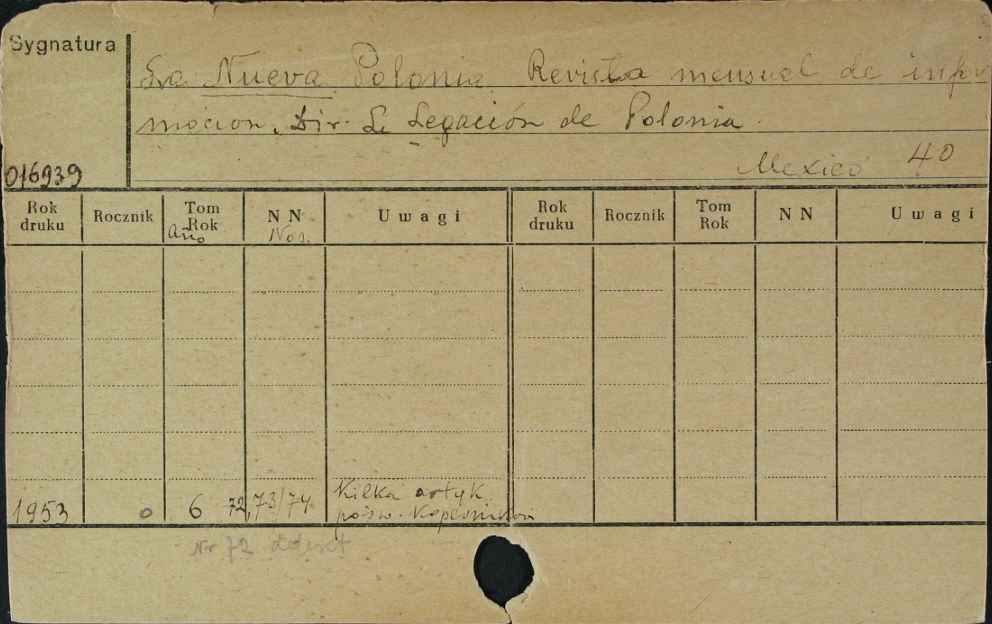 Sygnatura
La Nueva Polonia. Revista mensual de infor
macion. Dir. L. Legación de Polonia.
016939
Mexico 40
Rok druku Rocznik Tom Rok N N U w a g i Rok druku Rocznik Tom Rok N N U w a g i
Año Nos.
Kilka artyk.
1953 0 6 72,73/74 pośw. Kopernikowi
Nr 72